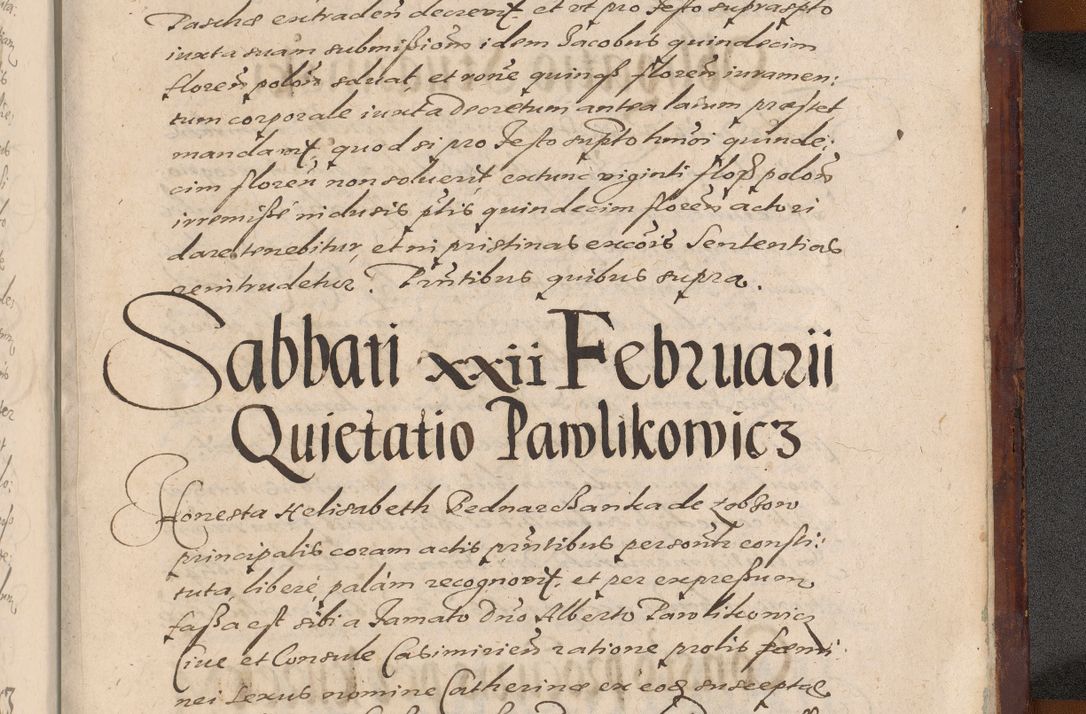 Paschæ extraden̄ decrevit, et ut pro festo suprascpto
iuxta suam submißiom̄ idem Jacobus quindecim
floren̄ polon̄ solvat, et rōne quinq̨ floren̄ iuramen:
tum corporale iuxta decretum antea latum præstet
mandavit, quod si pro festo supto hmōi quinde:
cim floren̄ non solverit extunc viginti flor̄ polon̄
irremißē inclusis ptis quindecim floren̄ actori
dare tenebitur, et in pristinas excōis sententias
remitudetur. Pn̄tibus quibus supra.
Sabbati xxii Februarii
Quietatio Pawlikowicz
Honesta Helisabeth Bednarzanka de Lobzow
principalis coram actis pn̄tibus personlr consti:
tuta, liberè, palàm recognovit, et per expreßum
faßa est sibi a famato Dn̄o Alberto Pawlikowicz
Cive et Consule Casimirien̄ ratione prolis fœmi:
nei sexus nomine Catherinæ ex eod susceptæ